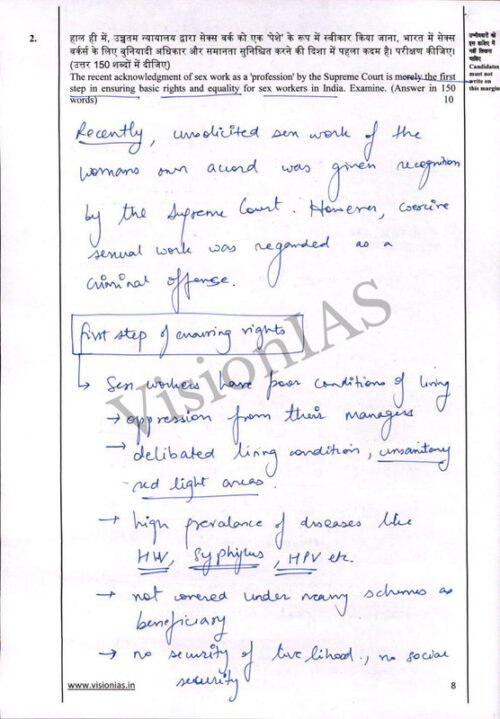 2.
हाल ही में, उच्चतम न्यायालय द्वारा सेक्स वर्क को एक 'पेशे' के रूप में स्वीकार किया जाना, भारत में सेक्स
वर्कर्स के लिए बुनियादी अधिकार और समानता सुनिश्चित करने की दिशा में पहला कदम है। परीक्षण कीजिए।
(उत्तर 150 शब्दों में दीजिए)
The recent acknowledgment of sex work as a 'profession' by the Supreme Court is merely the first
step in ensuring basic rights and equality for sex workers in India. Examine. (Answer in 150
words) 10
उम्मीदवारों को
इस हाशिए में
नहीं लिखना
चाहिए
Candidates
must not
write on
this margin
Recently, unsolicited sex work of the
womans own accord was given recognition
by the Supreme Court. However, coercive
sexual work was regarded as a
criminal offense.
first step of ensuring rights
Sex workers have poor conditions of living
→ oppression from their managers
→ delibated living condition, unsanitary
red light areas.
→ high prevalance of diseases like
HIV, Syphijus, HPV etc.
→ not covered under many schemes as
beneficiary
→ no security of livelihood., no social
security
VisionIAS
www.visionias.in
8